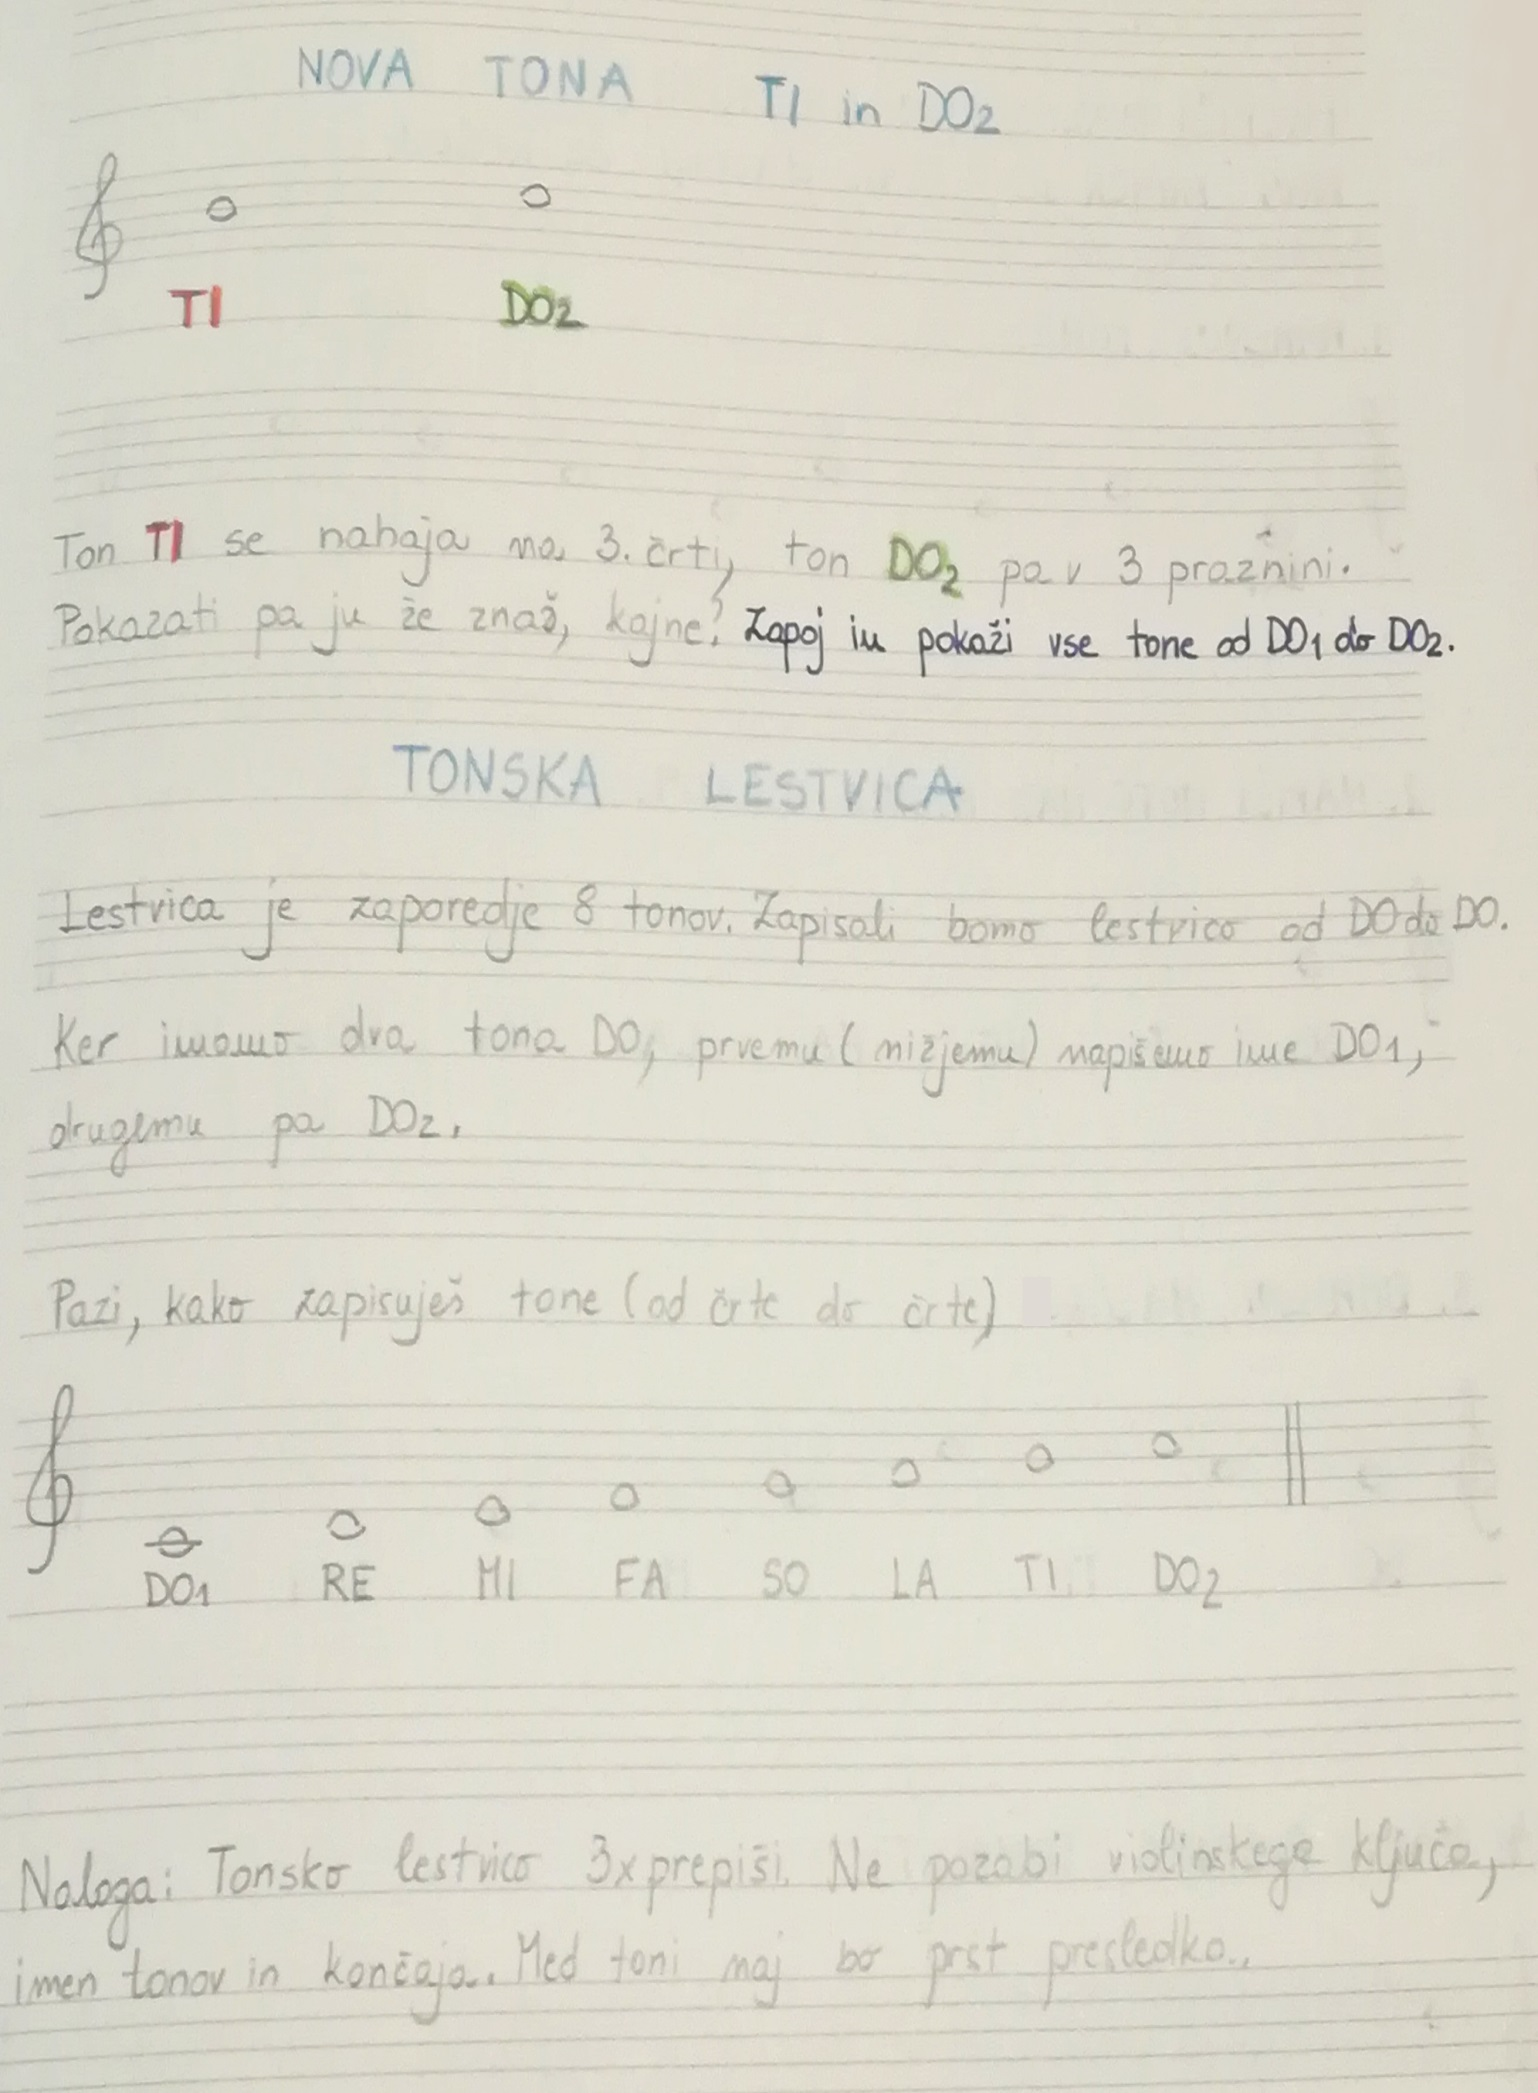 NOVA TONA TI in DO2
TI DO2
Ton TI se nahaja na 3. črti, ton DO2 pa v 3 praznini.
Pokazati pa ju že znaš, kajne? Zapoj in pokaži vse tone od DO1 do DO2.
TONSKA LESTVICA
Lestvica je zaporedje 8 tonov. Zapisali bomo lestvico od DO do DO.
Ker imamo dva tona DO, prvemu (nižjemu) napišemo ime DO1,
drugemu pa DO2.
Pazi, kako zapisuješ tone (od črte do črte)
DO1 RE MI FA SO LA TI DO2
Naloga: Tonsko lestvico 3x prepiši. Ne pozabi violinskega ključa,
imen tonov in končaja. Med toni naj bo prst presledka.